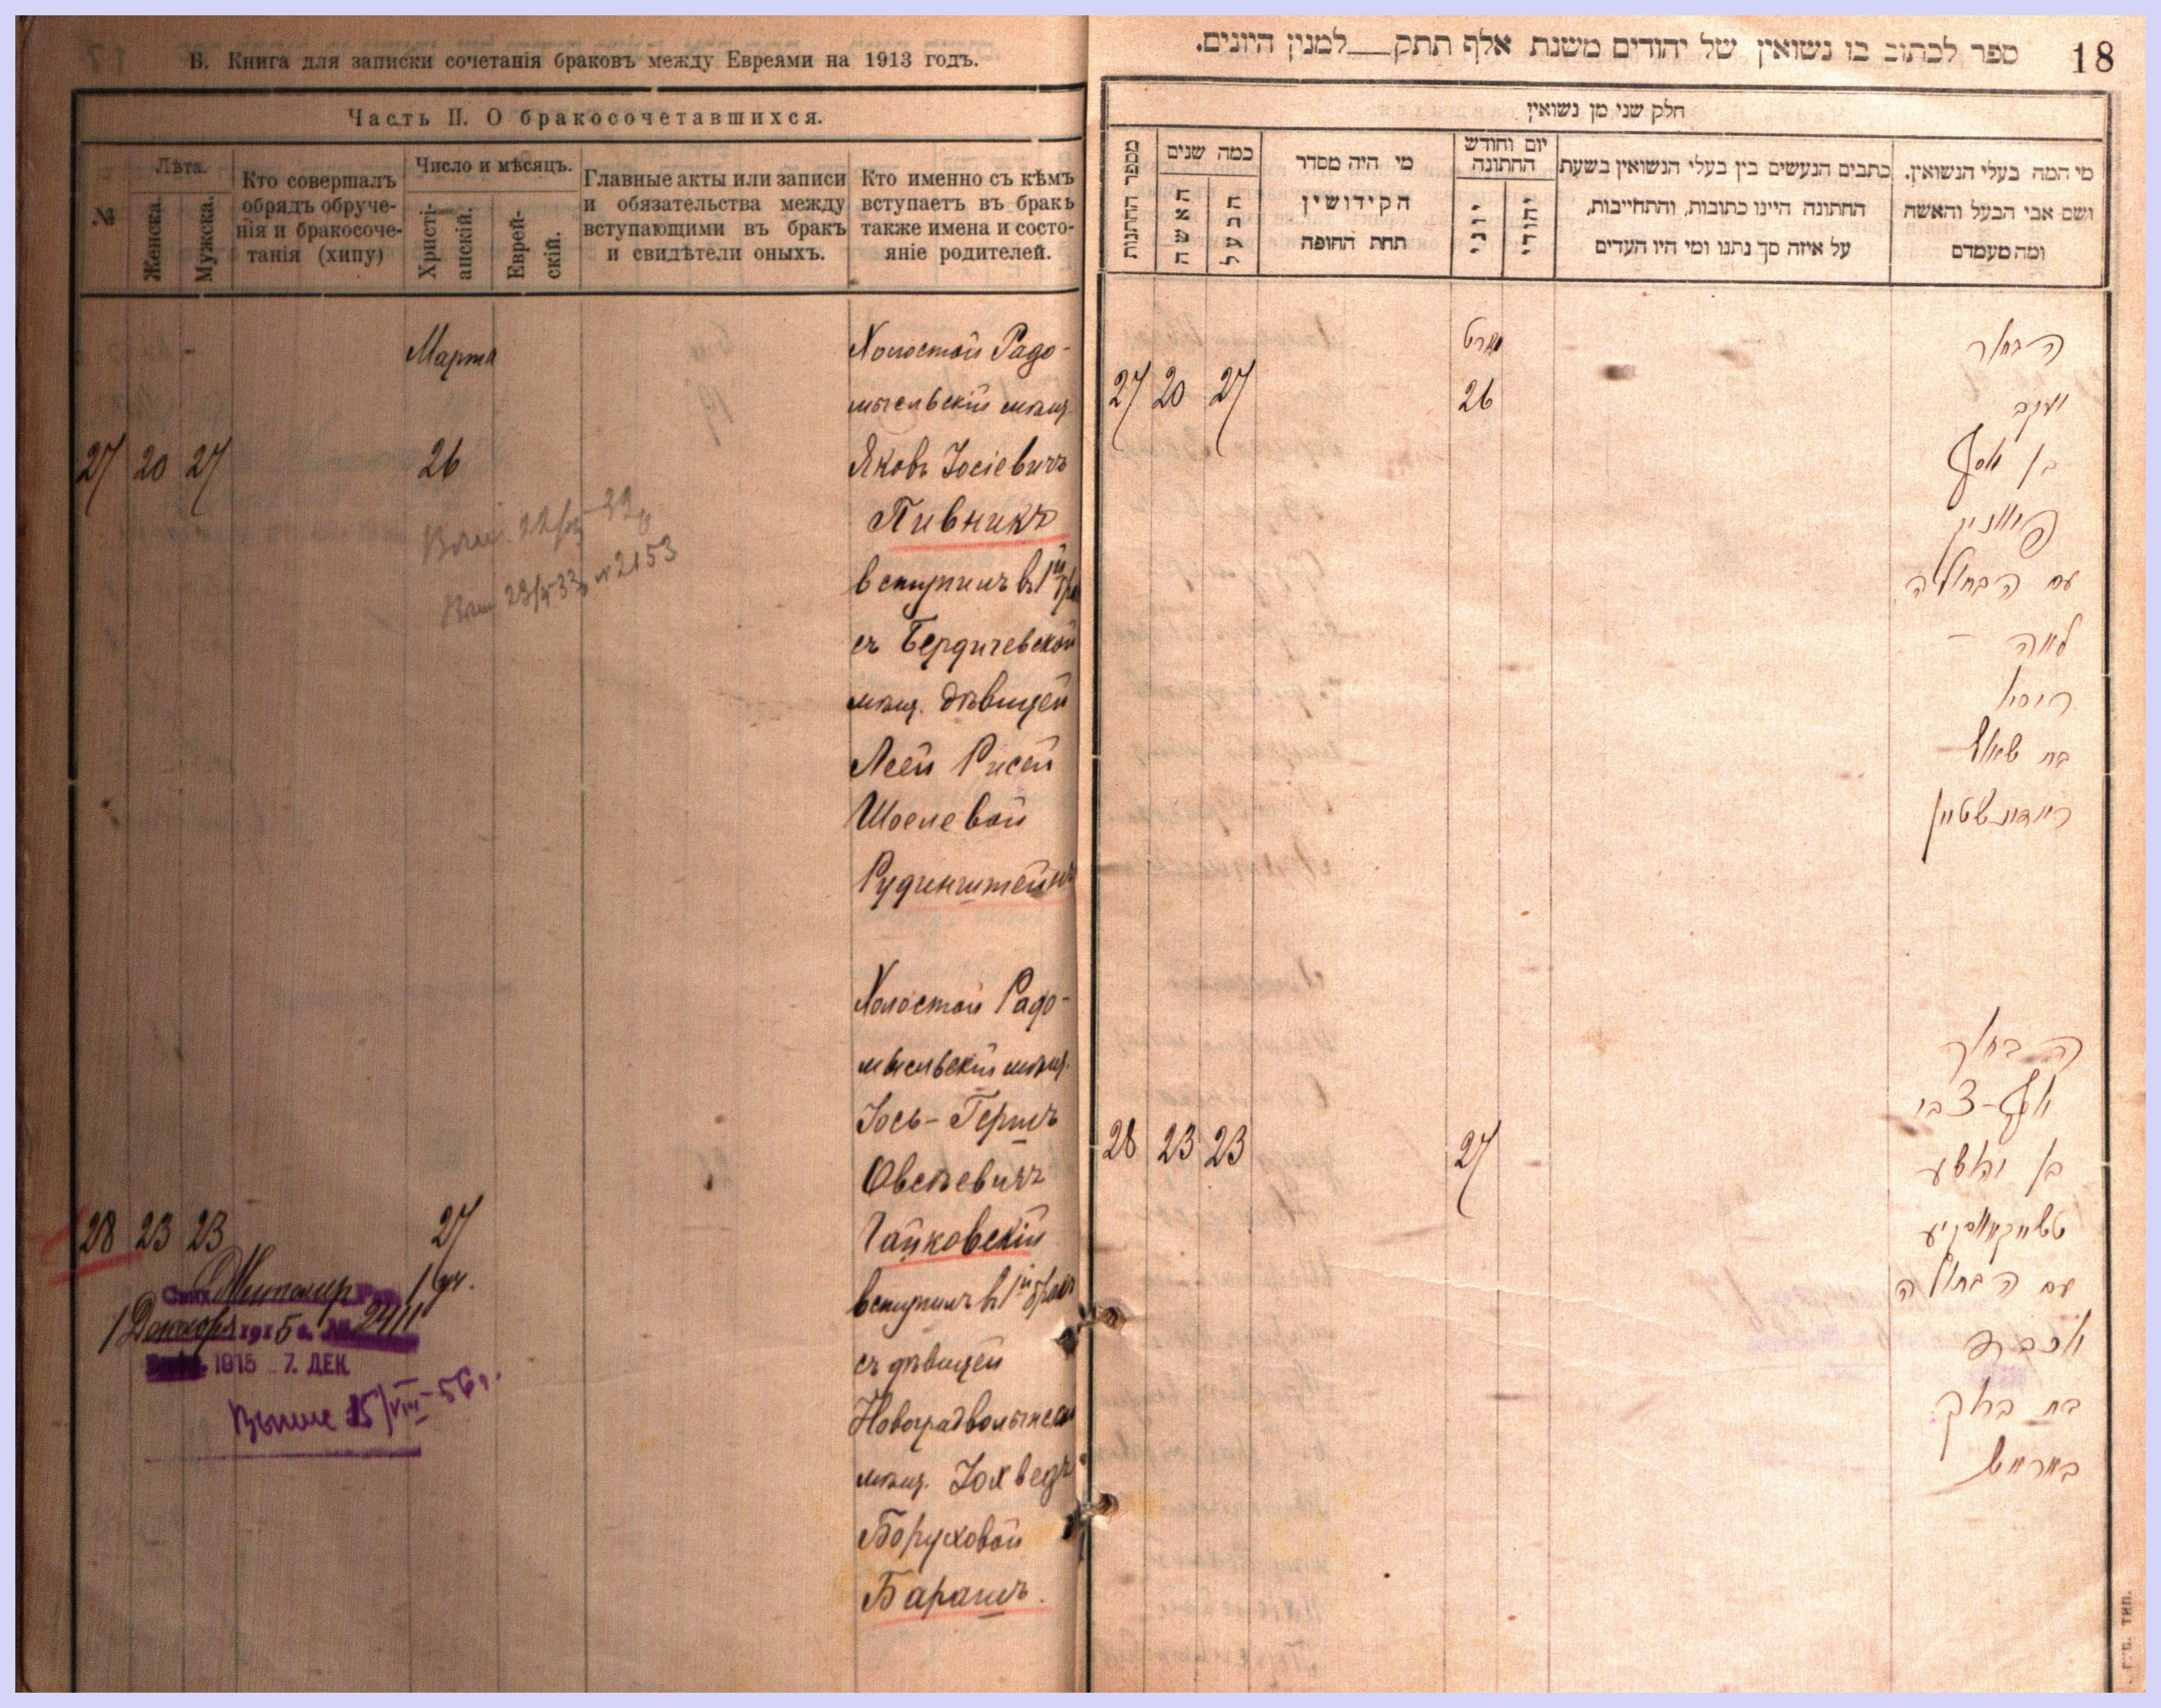 Б. Книга для записки сочетанія браковъ между Евреями на 1913 годъ.
Часть II. О бракосочетавшихся.
№
Лѣта.
Женска.
Мужска.
Кто совершалъ
обрядъ обруче-
нія и бракосоче-
танія (хипу)
Число и мѣсяцъ.
Христі-
анскій.
Еврей-
скій.
Главные акты или записи
и обязательства между
вступающими въ бракъ
и свидѣтели оныхъ.
Кто именно съ кѣмъ
вступаетъ въ бракъ
также имена и состо-
яніе родителей.
Марта
27 20 27 26
Холостой Радо-
мысльскій мѣщ.
Яковъ Іосіевичъ
Пивникъ
вступилъ въ 1й бра
съ Бердичевской
мѣщ. дѣвицей
Леей Рисей
Шоелевой
Рудинштейнъ
23/5 33 №2153
28 23 23 27
Холостой Радо-
мысльскій мѣщ.
Іось-Гершъ
Овсѣевичъ
Чайковскій
вступилъ въ 1й бракъ
съ дѣвицей
Новоградволынской
мѣщ. Іохведъ
Боруховой
Барашъ.
Житомир
1 Декабря 1915 г. № 2411
1915 - 7. ДЕК
Выпис 15/VIII-56 г.
18
ספר לכתוב בו נשואין של יהודים משנת אלף תתק——למנין היונים.
חלק שני מן נשואין
מספר החתונות
כמה שנים
האשה
הבעל
מי היה מסדר
הקידושין
תחת החופה
יום וחודש
החתונה
יוני
יהודי
כתבים הנעשים בין בעלי הנשואין בשעת
החתונה היינו כתובות, והתחייבות,
על איזה סך נתנו ומי היו העדים
מי המה בעלי הנשואין.
ושם אבי הבעל והאשה
ומה מעמדם
מארט
27 20 27 26
הבחור
יעקב
בן יוסף
פיווניק
עם הבתולה
לאה
ריסא
בת שאול
רודינשטיין
28 23 23 27
הבחור
יוסף-צבי
בן יהושע
טשייקאווסקיע
עם הבתולה
יוכבד
בת ברוך
באראש
Г. Б. ТИП.